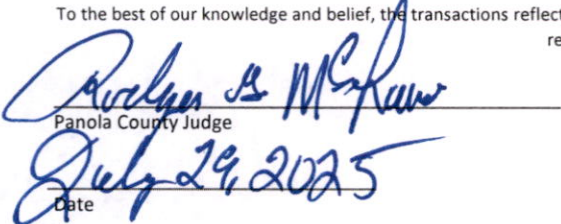 To the best of our knowledge and belief, the transactions reflect
re
Rodger G McLane
Panola County Judge
July 29, 2025
Date